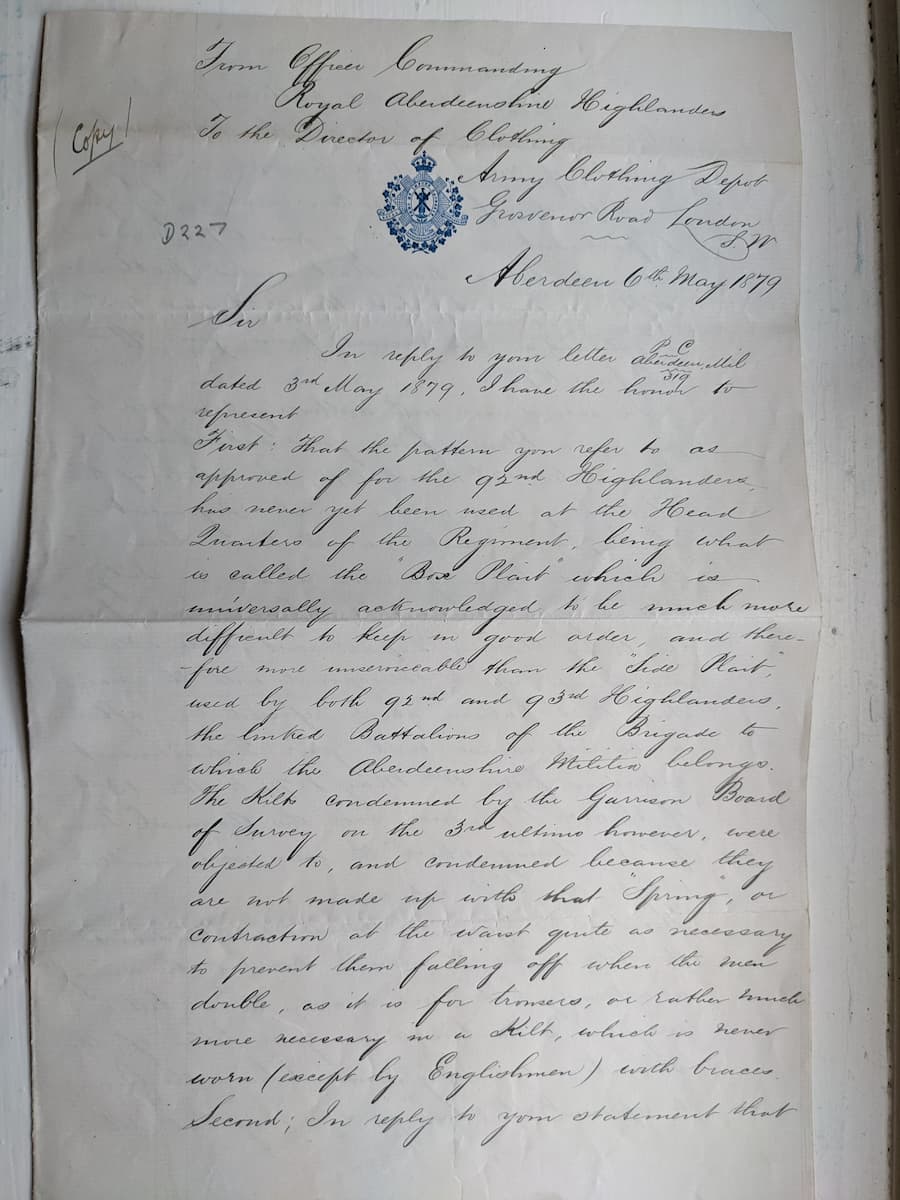 From Officer Commanding
Royal Aberdeenshire Highlanders
(Copy)
To the Director of Clothing
Army Clothing Depot
Grosvenor Road London
S W
D227
Aberdeen 6th May 1879
Sir
In reply to your letter P C Aberdeen Mil 319
dated 3rd May 1879, I have the honor to
represent
First: That the pattern you refer to as
approved of for the 92nd Highlanders,
has never yet been used at the Head
Quarters of the Regiment, being what
is called the "Box Plait" which is
universally acknowledged to be much more
difficult to keep in good order, and there-
-fore more unserviceable than the "Side Plait",
used by both 92nd and 93rd Highlanders,
the linked Battalions of the Brigade to
which the Aberdeenshire Militia belongs.
The Kilts condemned by the Garrison Board
of Survey on the 3rd ultimo however, were
objected to, and condemned because they
are not made up with that "Spring", or
contraction at the waist quite as necessary
to prevent them falling off when the men
double, as it is for trousers, or rather much
more necessary in a Kilt, which is never
worn (except by Englishmen) with braces.
Second; In reply to your statement that